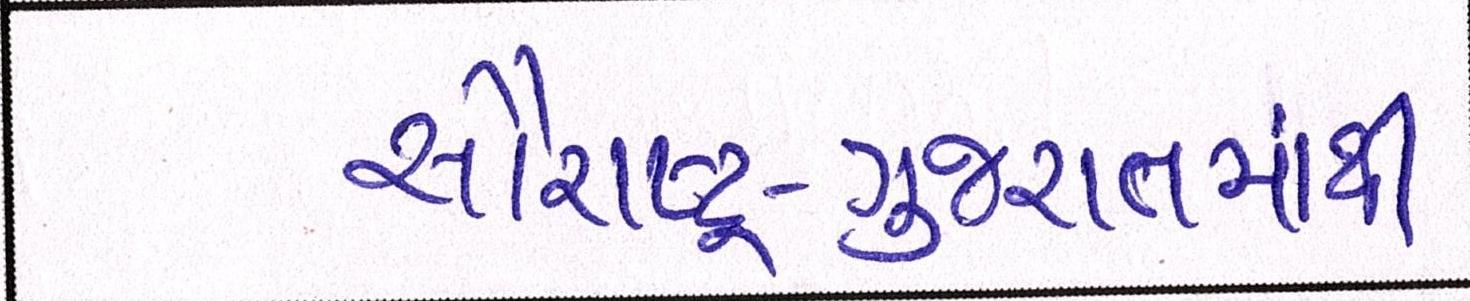 સૌરાષ્ટ્ર-ગુજરાતમાંથી